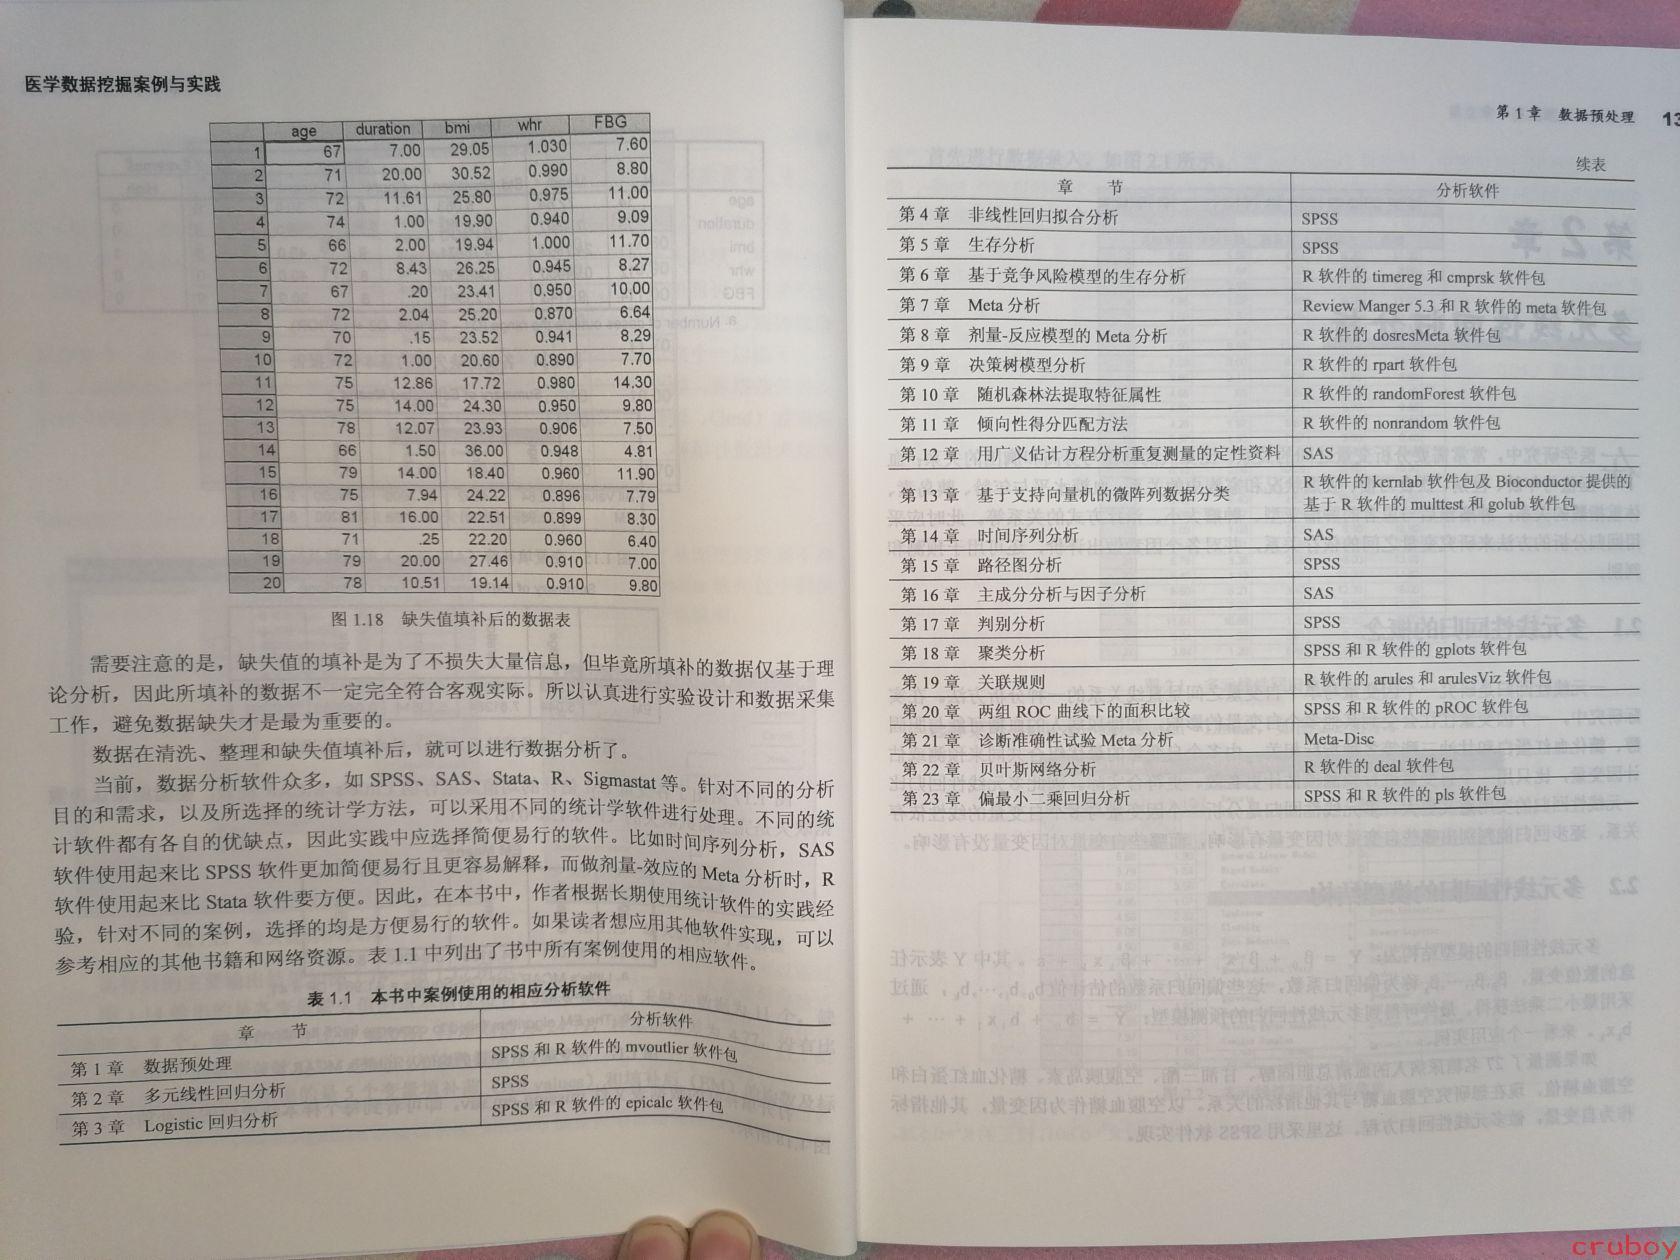 医学数据挖掘案例与实践
age duration bmi whr FBG
1 67 7.00 29.05 1.030 7.60
2 71 20.00 30.52 0.990 8.80
3 72 11.61 25.80 0.975 11.00
4 74 1.00 19.90 0.940 9.09
5 66 2.00 19.94 1.000 11.70
6 72 8.43 26.25 0.945 8.27
7 67 .20 23.41 0.950 10.00
8 72 2.04 25.20 0.870 6.64
9 70 .15 23.52 0.941 8.29
10 72 1.00 20.60 0.890 7.70
11 75 12.86 17.72 0.980 14.30
12 75 14.00 24.30 0.950 9.80
13 78 12.07 23.93 0.906 7.50
14 66 1.50 36.00 0.948 4.81
15 79 14.00 18.40 0.960 11.90
16 75 7.94 24.22 0.896 7.79
17 81 16.00 22.51 0.899 8.30
18 71 .25 22.20 0.960 6.40
19 79 20.00 27.46 0.910 7.00
20 78 10.51 19.14 0.910 9.80
图 1.18 缺失值填补后的数据表
需要注意的是，缺失值的填补是为了不损失大量信息，但毕竟所填补的数据仅基于理
论分析，因此所填补的数据不一定完全符合客观实际。所以认真进行实验设计和数据采集
工作，避免数据缺失才是最为重要的。
数据在清洗、整理和缺失值填补后，就可以进行数据分析了。
当前，数据分析软件众多，如 SPSS、SAS、Stata、R、Sigmastat 等。针对不同的分析
目的和需求，以及所选择的统计学方法，可以采用不同的统计学软件进行处理。不同的统
计软件都有各自的优缺点，因此实践中应选择简便易行的软件。比如时间序列分析，SAS
软件使用起来比 SPSS 软件更加简便易行且更容易解释，而做剂量-效应的 Meta 分析时，R
软件使用起来比 Stata 软件要方便。因此，在本书中，作者根据长期使用统计软件的实践经
验，针对不同的案例，选择的均是方便易行的软件。如果读者想应用其他软件实现，可以
参考相应的其他书籍和网络资源。表 1.1 中列出了书中所有案例使用的相应软件。
表 1.1 本书中案例使用的相应分析软件
章 节 分析软件
第 1 章 数据预处理 SPSS 和 R 软件的 mvoutlier 软件包
第 2 章 多元线性回归分析 SPSS
第 3 章 Logistic 回归分析 SPSS 和 R 软件的 epicalc 软件包
第 1 章 数据预处理 13
续表
章 节 分析软件
第 4 章 非线性回归拟合分析 SPSS
第 5 章 生存分析 SPSS
第 6 章 基于竞争风险模型的生存分析 R 软件的 timereg 和 cmprsk 软件包
第 7 章 Meta 分析 Review Manger 5.3 和 R 软件的 meta 软件包
第 8 章 剂量-反应模型的 Meta 分析 R 软件的 dosresMeta 软件包
第 9 章 决策树模型分析 R 软件的 rpart 软件包
第 10 章 随机森林法提取特征属性 R 软件的 randomForest 软件包
第 11 章 倾向性得分匹配方法 R 软件的 nonrandom 软件包
第 12 章 用广义估计方程分析重复测量的定性资料 SAS
第 13 章 基于支持向量机的微阵列数据分类 R 软件的 kernlab 软件包及 Bioconductor 提供的
基于 R 软件的 multtest 和 golub 软件包
第 14 章 时间序列分析 SAS
第 15 章 路径图分析 SPSS
第 16 章 主成分分析与因子分析 SAS
第 17 章 判别分析 SPSS
第 18 章 聚类分析 SPSS 和 R 软件的 gplots 软件包
第 19 章 关联规则 R 软件的 arules 和 arulesViz 软件包
第 20 章 两组 ROC 曲线下的面积比较 SPSS 和 R 软件的 pROC 软件包
第 21 章 诊断准确性试验 Meta 分析 Meta-Disc
第 22 章 贝叶斯网络分析 R 软件的 deal 软件包
第 23 章 偏最小二乘回归分析 SPSS 和 R 软件的 pls 软件包
cruboy